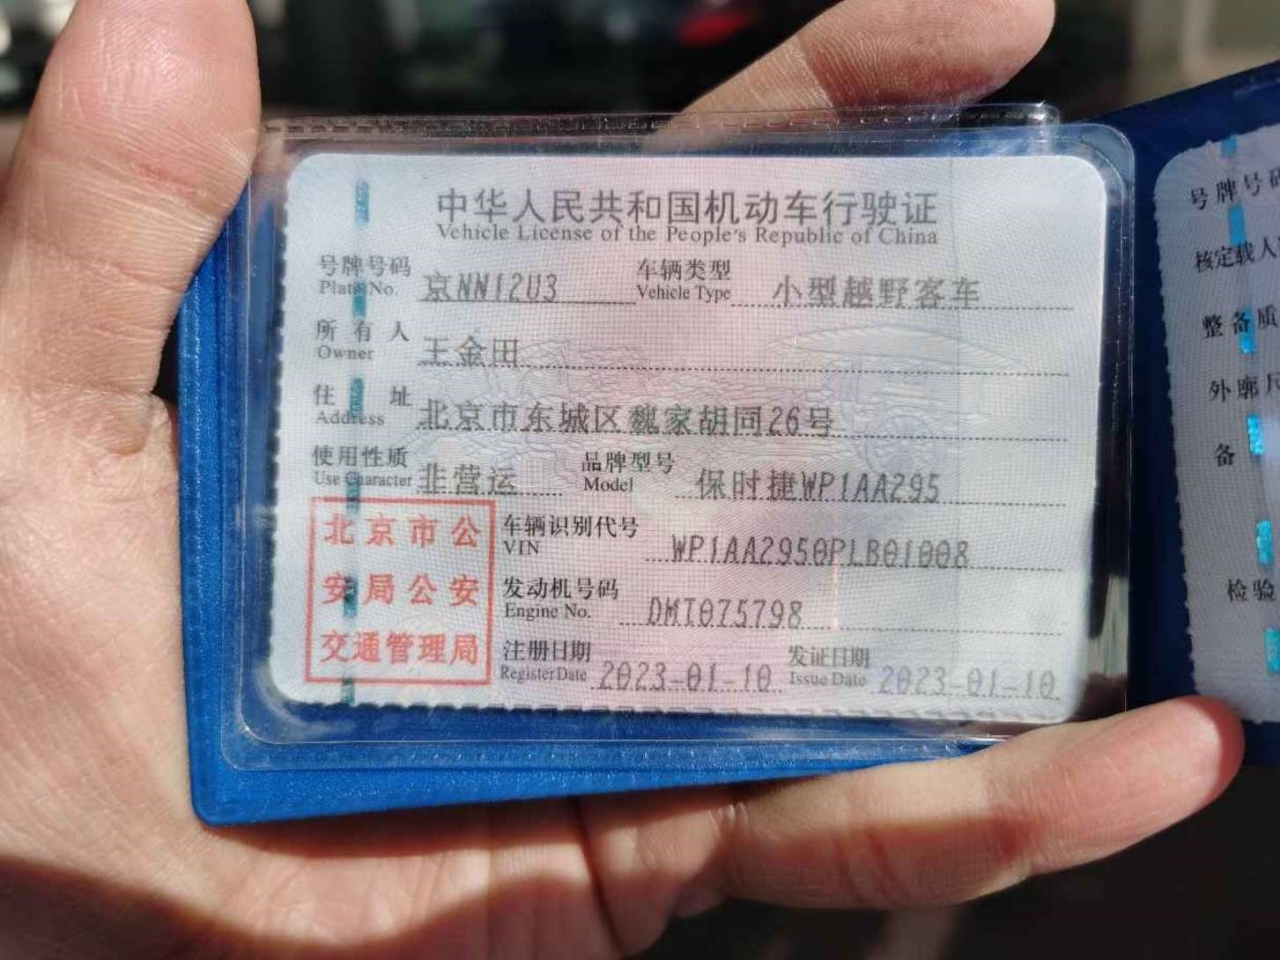 中华人民共和国机动车行驶证
Vehicle License of the People's Republic of China
号牌号码 京NN12U3 车辆类型 小型越野客车
Plate No. Vehicle Type
所有人 王金田
Owner
住址 北京市东城区魏家胡同26号
Address
使用性质 非营运 品牌型号 保时捷WP1AA295
Use Character Model
车辆识别代号 WP1AA2950PLB01008
VIN
发动机号码 DMT075798
Engine No.
注册日期 2023-01-10 发证日期 2023-01-10
Register Date Issue Date
北京市公
安局公安
交通管理局
号牌号码
核定载人
整备质
外廓尺
备
检验